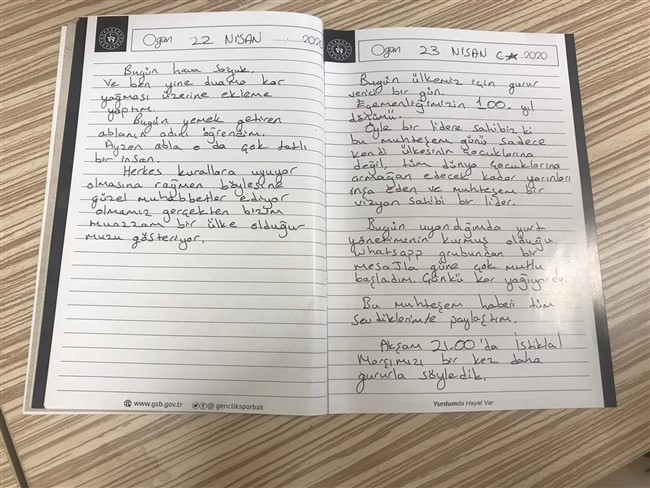 O gün 22 NİSAN 2020
Bugün hava soğuk.
Ve ben yine duama kar
yağması üzerine ekleme
yaptım.
Bugün yemek getiren
ablanın adını öğrendim.
Ayzen abla o da çok tatlı
bir insan.
Herkes kurallara uyuyor
olmasına rağmen böylesine
güzel muhabbetler ediyor
olmamız gerçekten bizim
muazzam bir ülke olduğu
muzu gösteriyor.
www.gsb.gov.tr gencliksporbak
O gün 23 NİSAN 2020
Bugün ülkemiz için gurur
verici bir gün.
Egemenliğimizin 100. yıl
dönümü.
Öyle bir lidere sahibiz ki
bu muhteşem günü sadece
kendi ülkesinin çocuklarına
değil, tüm dünya çocuklarına
armağan edecek kadar yarınları
inşa eden ve muhteşem bir
vizyon sahibi bir lider.
Bugün uyandığımda yurt
yönetiminin kurmuş olduğu
whatsapp grubundan bir
mesajla güne çok mutlu
başladım. Çünkü kar yağıyordu.
Bu muhteşem haberi tüm
sevdiklerimle paylaştım.
Akşam 21.00'da İstiklal
Marşımızı bir kez daha
gururla söyledik.
Yurdumda Hayat Var